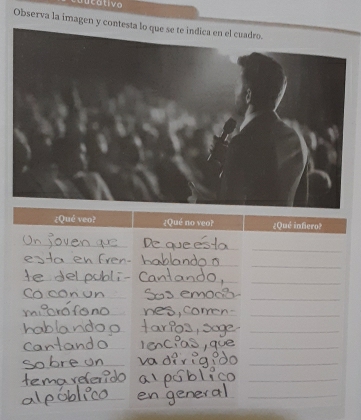 educativo
Observa la imagen y contesta lo que se te indica en el cuadro.
¿Qué veo? ¿Qué no veo? ¿Qué infiero?
Un joven que
esta en fren-
te del publi-
co con un
microfono
hablando o
cantando
sobre un
tema referido
al público
De que esta
hablando o
cantando,
Sus emocio-
nes, comen-
tarios, suge-
rencias, que
va dirigido
al público
en general